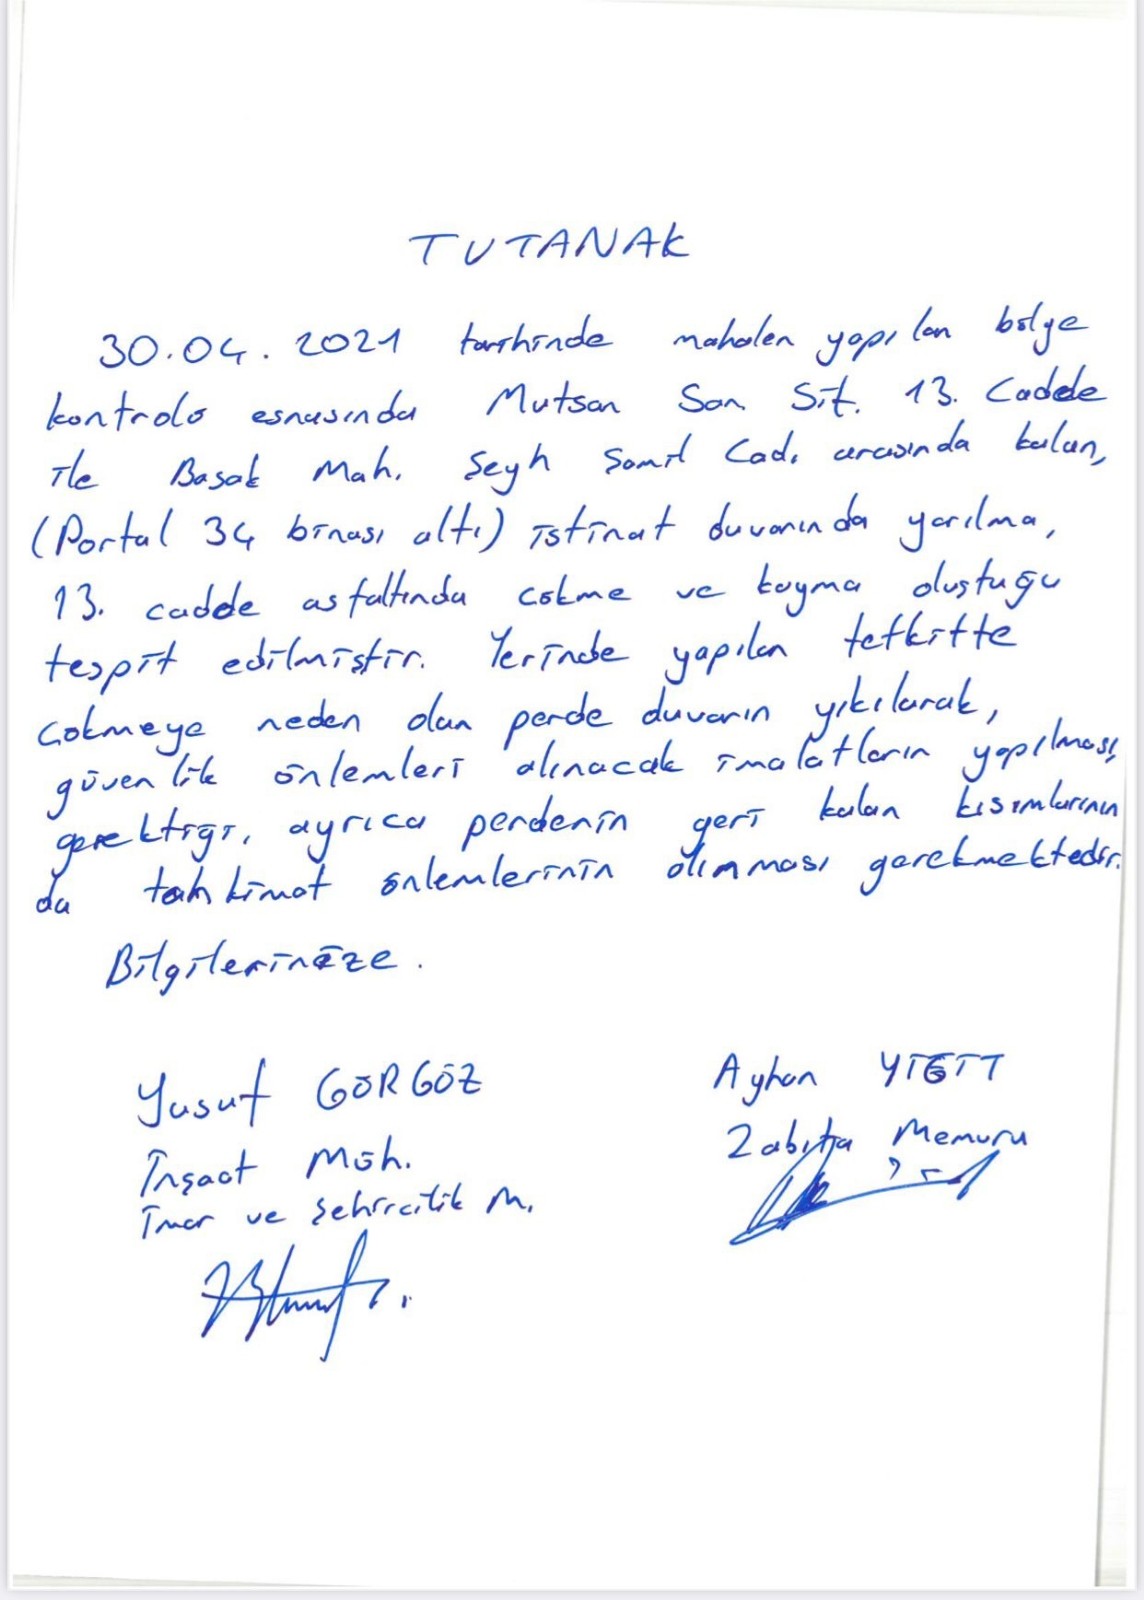 TUTANAK
30.04.2021 tarihinde mahalen yapılan bölge
kontrolü esnasında Mutsan San. Sit. 13. Cadde
ile Başak Mah. Şeyh Şamil Cad. arasında kalan,
(Portal 34 binası altı) istinat duvarında yarılma,
13. cadde asfaltında çökme ve kayma oluştuğu
tespit edilmiştir. Yerinde yapılan tetkitte
çökmeye neden olan perde duvarın yıkılarak,
güvenlik önlemleri alınacak imalatların yapılması,
gerektiği, ayrıca perdenin geri kalan kısımlarının
da tahkimat önlemlerinin alınması gerekmektedir.
Bilgilerinize.
Yusuf GÖRGÖZ
İnşaat Müh.
İmar ve Şehircilik M.
Ayhan YİĞİT
Zabıta Memuru